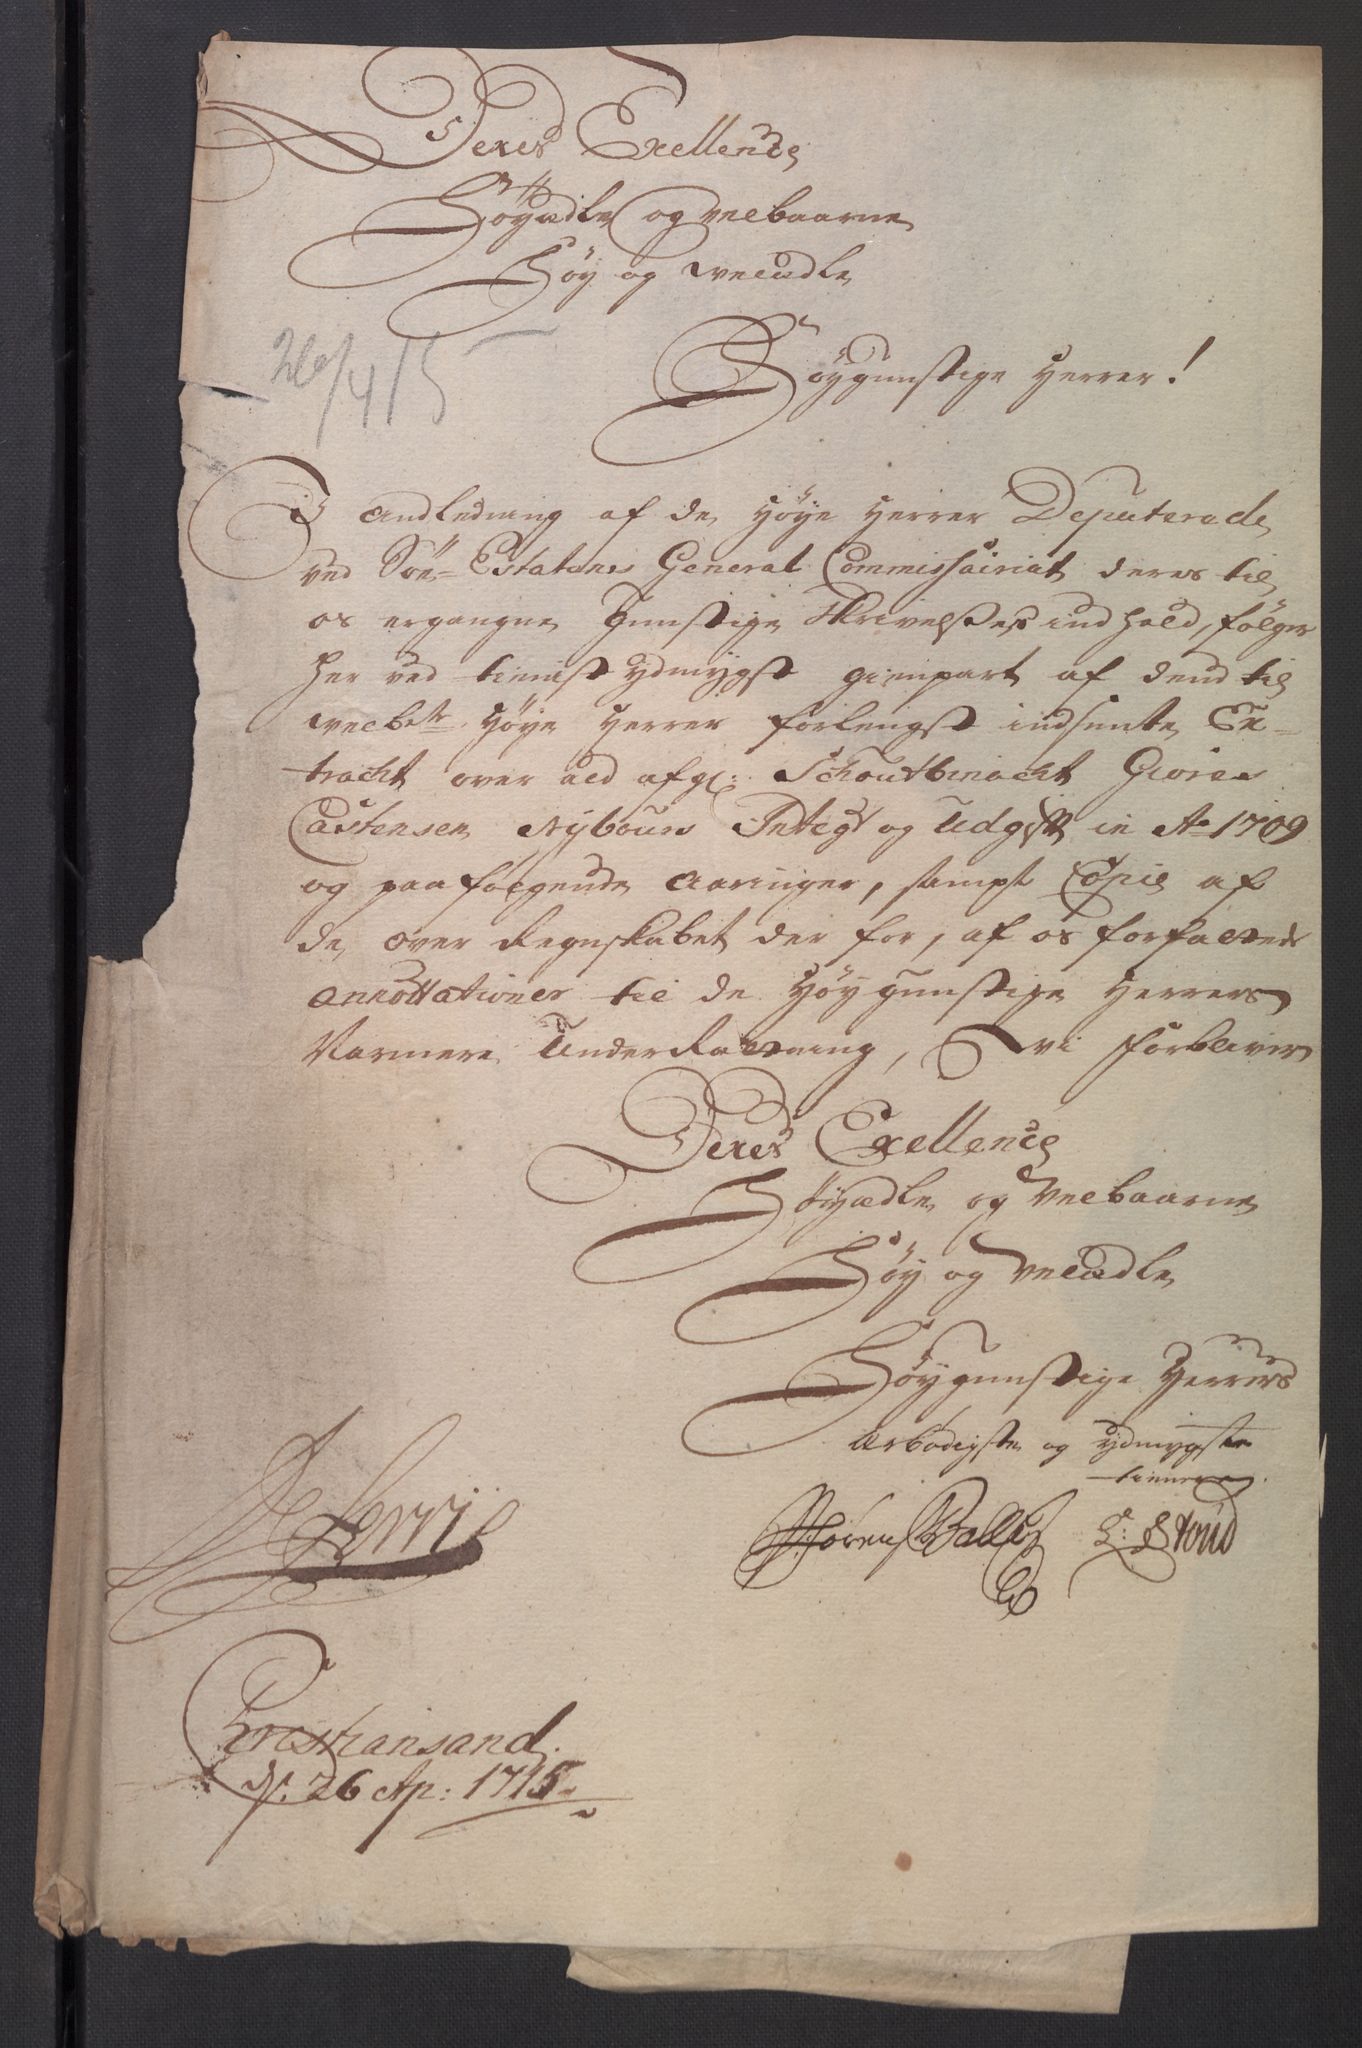 Deres Exellence
Höyædle og velbaarne
Höy og velædle
Höygunstige Herrer!
26/4 15
I andledning af de Höye Herrer Deputerede
ved Söe-Estatens General Commissariat deres til
os ergangne Gunstige Skrivelses indhold, fölger
her ved tienist ydmygst gienpart af dend til
velbte Höye Herrer forlengst indsente Ex-
tracht over ald afg: Schoutbinacht Giores
Castensen Nybours Integt og Udgift in Ao 1709
og paafölgende Aaringer, sampt Copie af
de over Regnskabet der for, af os forfattede
annottationer til de Höygunstige Herrers
Narmere Underretning, vi forbliver
Deres Exellence
Höyædle og Velbaarne
Höy og Velædle
Höygunstige Herrers
Arbödigste og ydmygste
tienere
Sören Balle
S: Stoud
Christiansand
d. 26 Ap: 1715